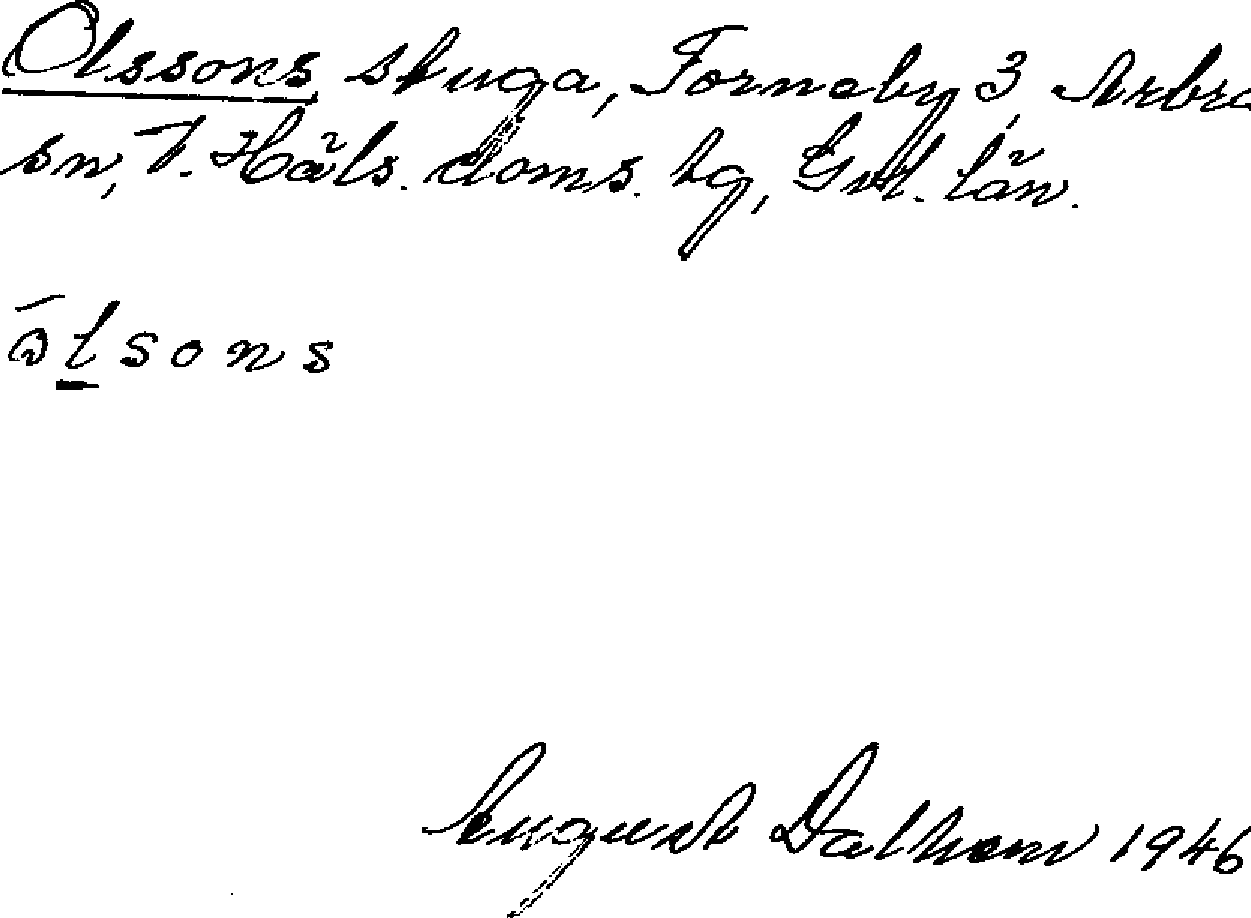 Olssons stuga, Forneby 3, Arbrå
sn, V. Häls. doms. tg, Gvl. län.
ōlsons
August Dalhem 1946